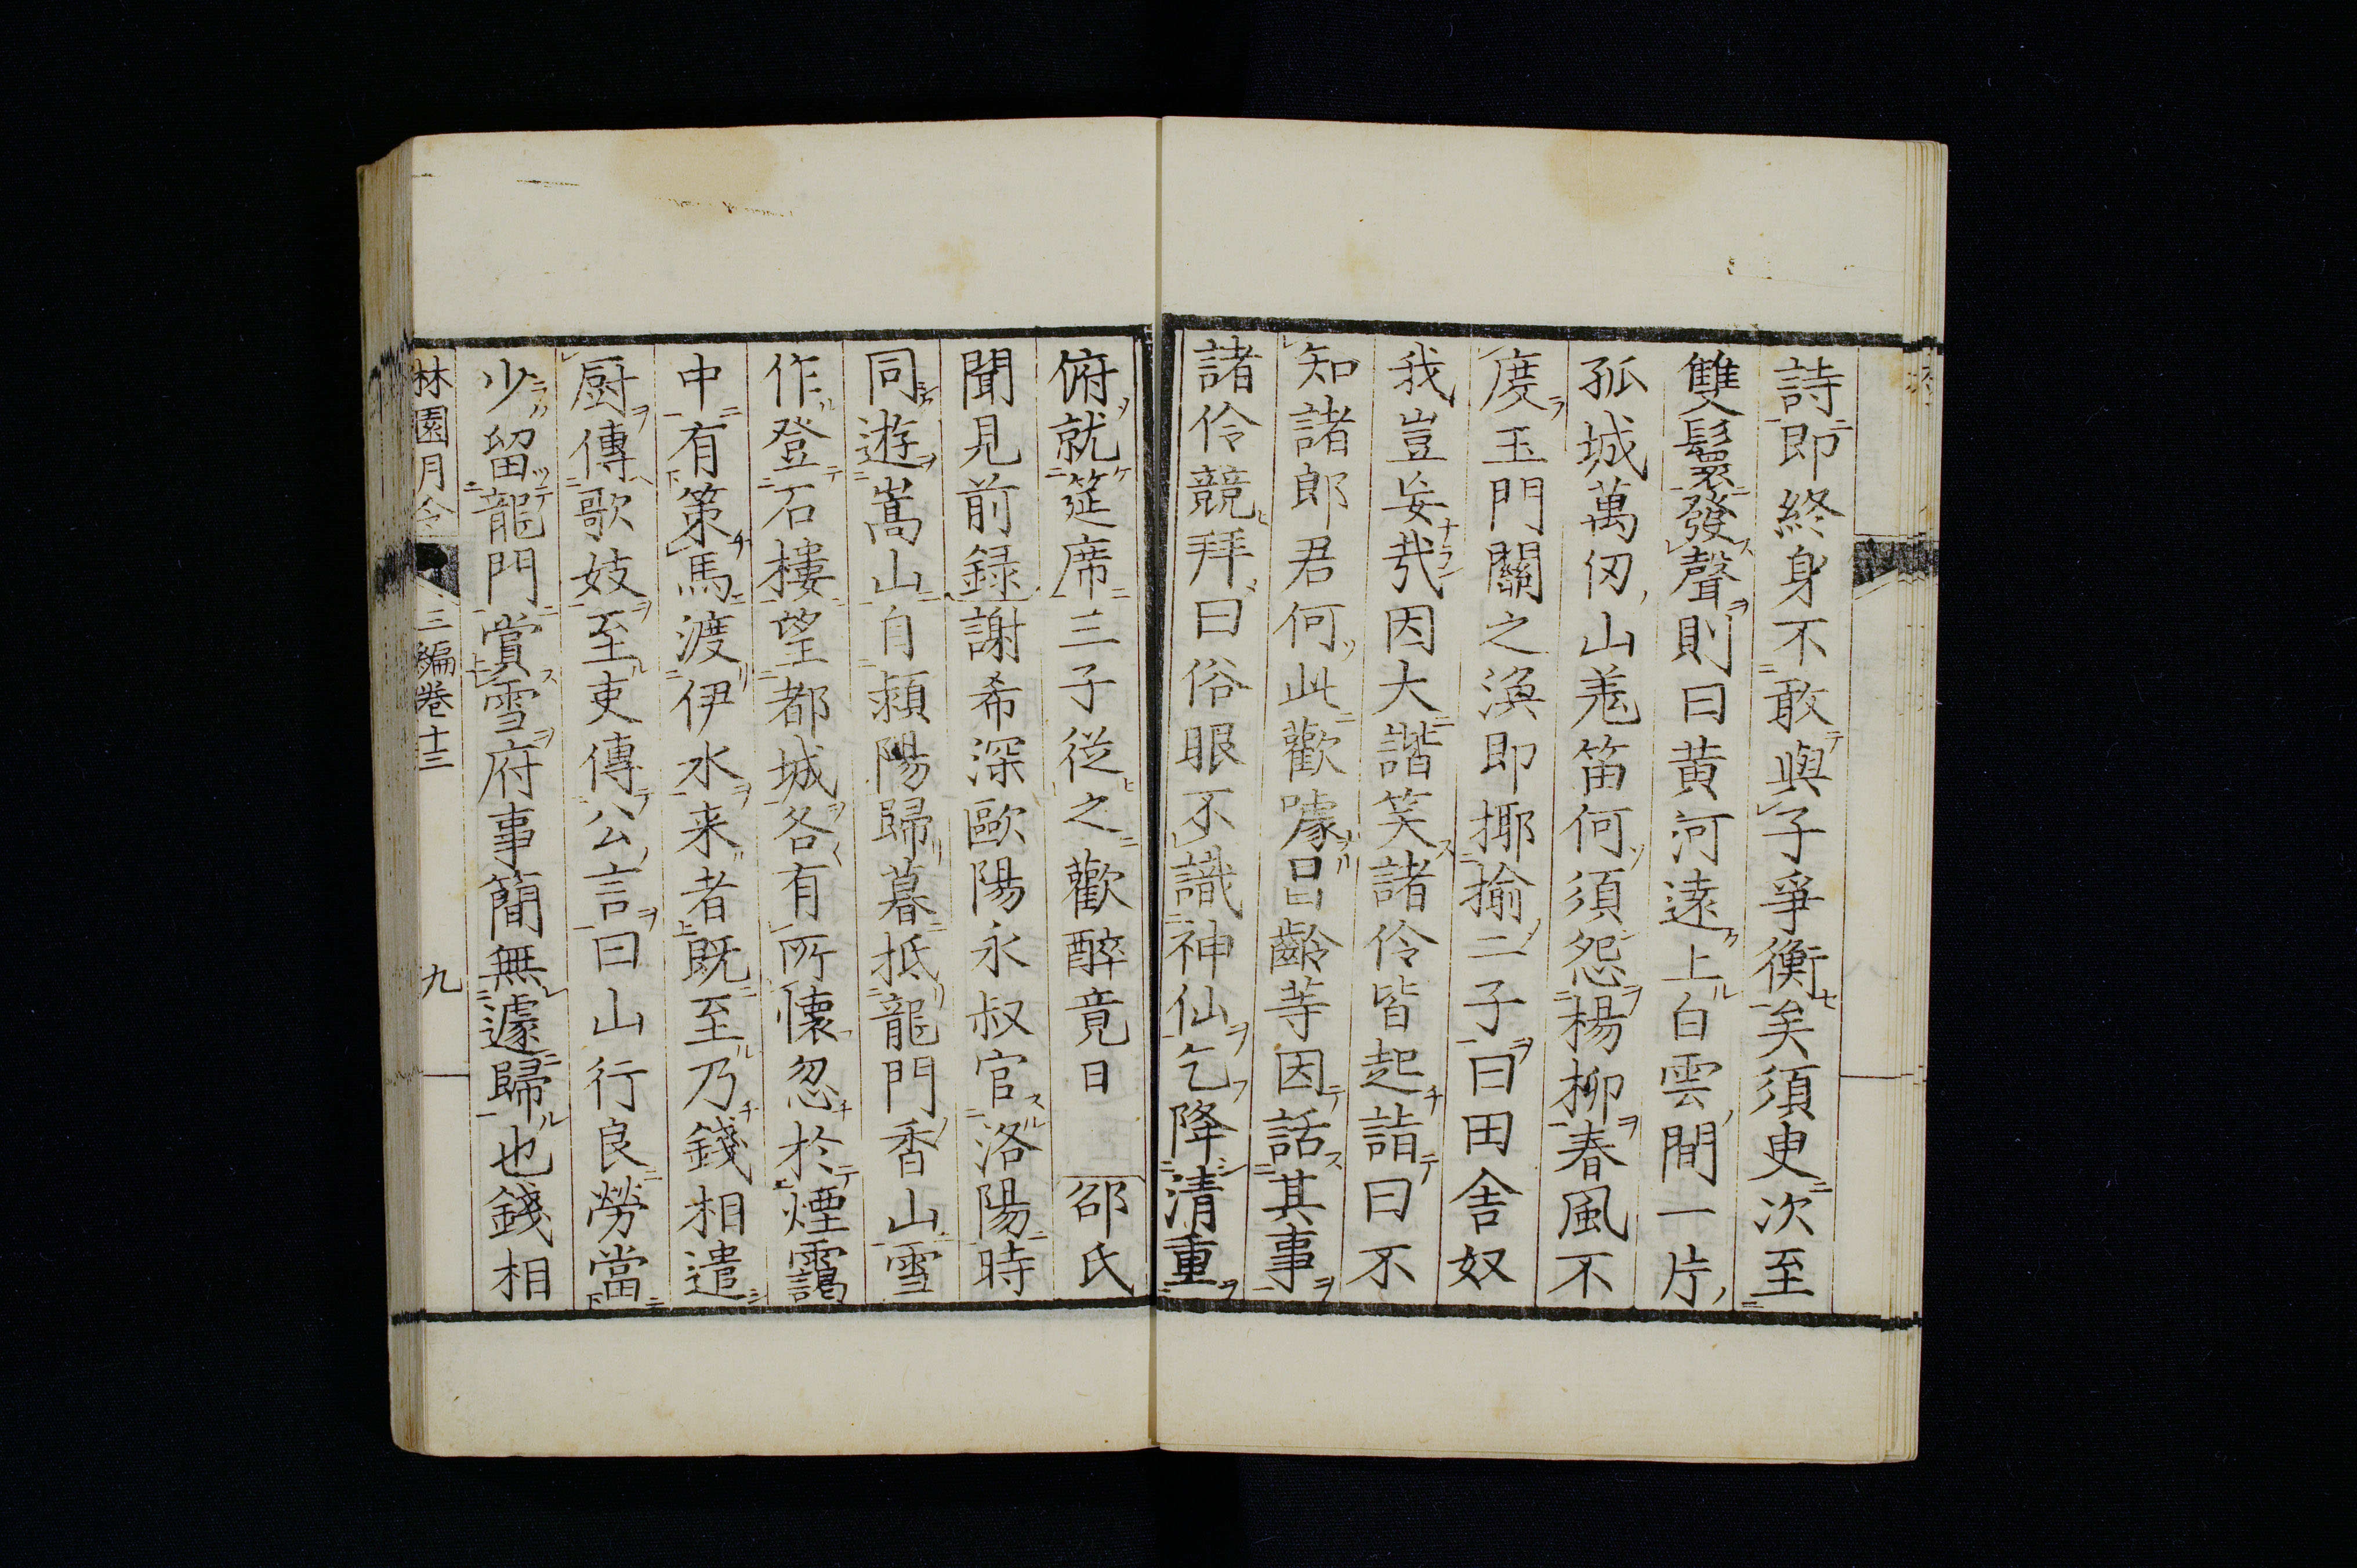 詩即終身不敢與子爭衡矣須臾次至
雙鬟發聲則曰黄河遠上白雲間一片
孤城萬仞山羌笛何須怨楊柳春風不
度玉門關之渙即揶揄二子曰田舎奴
我豈妄哉因大諧笑諸伶皆起詣曰不
知諸郎君何此歡噱昌齡等因話其事
諸伶競拜曰俗眼不識神仙乞降清重
俯就筵席三子從之歡醉竟日 邵氏
聞見前録謝希深歐陽永叔官洛陽時
同遊嵩山自潁陽歸暮抵龍門香山雪
作登石樓望都城各有所懐忽於煙靄
中有策馬渡伊水来者既至乃錢相遣
厨傳歌妓至吏傳公言曰山行良勞當
少留龍門賞雪府事簡無遽歸也錢相
林園月令 三編巻十三 九